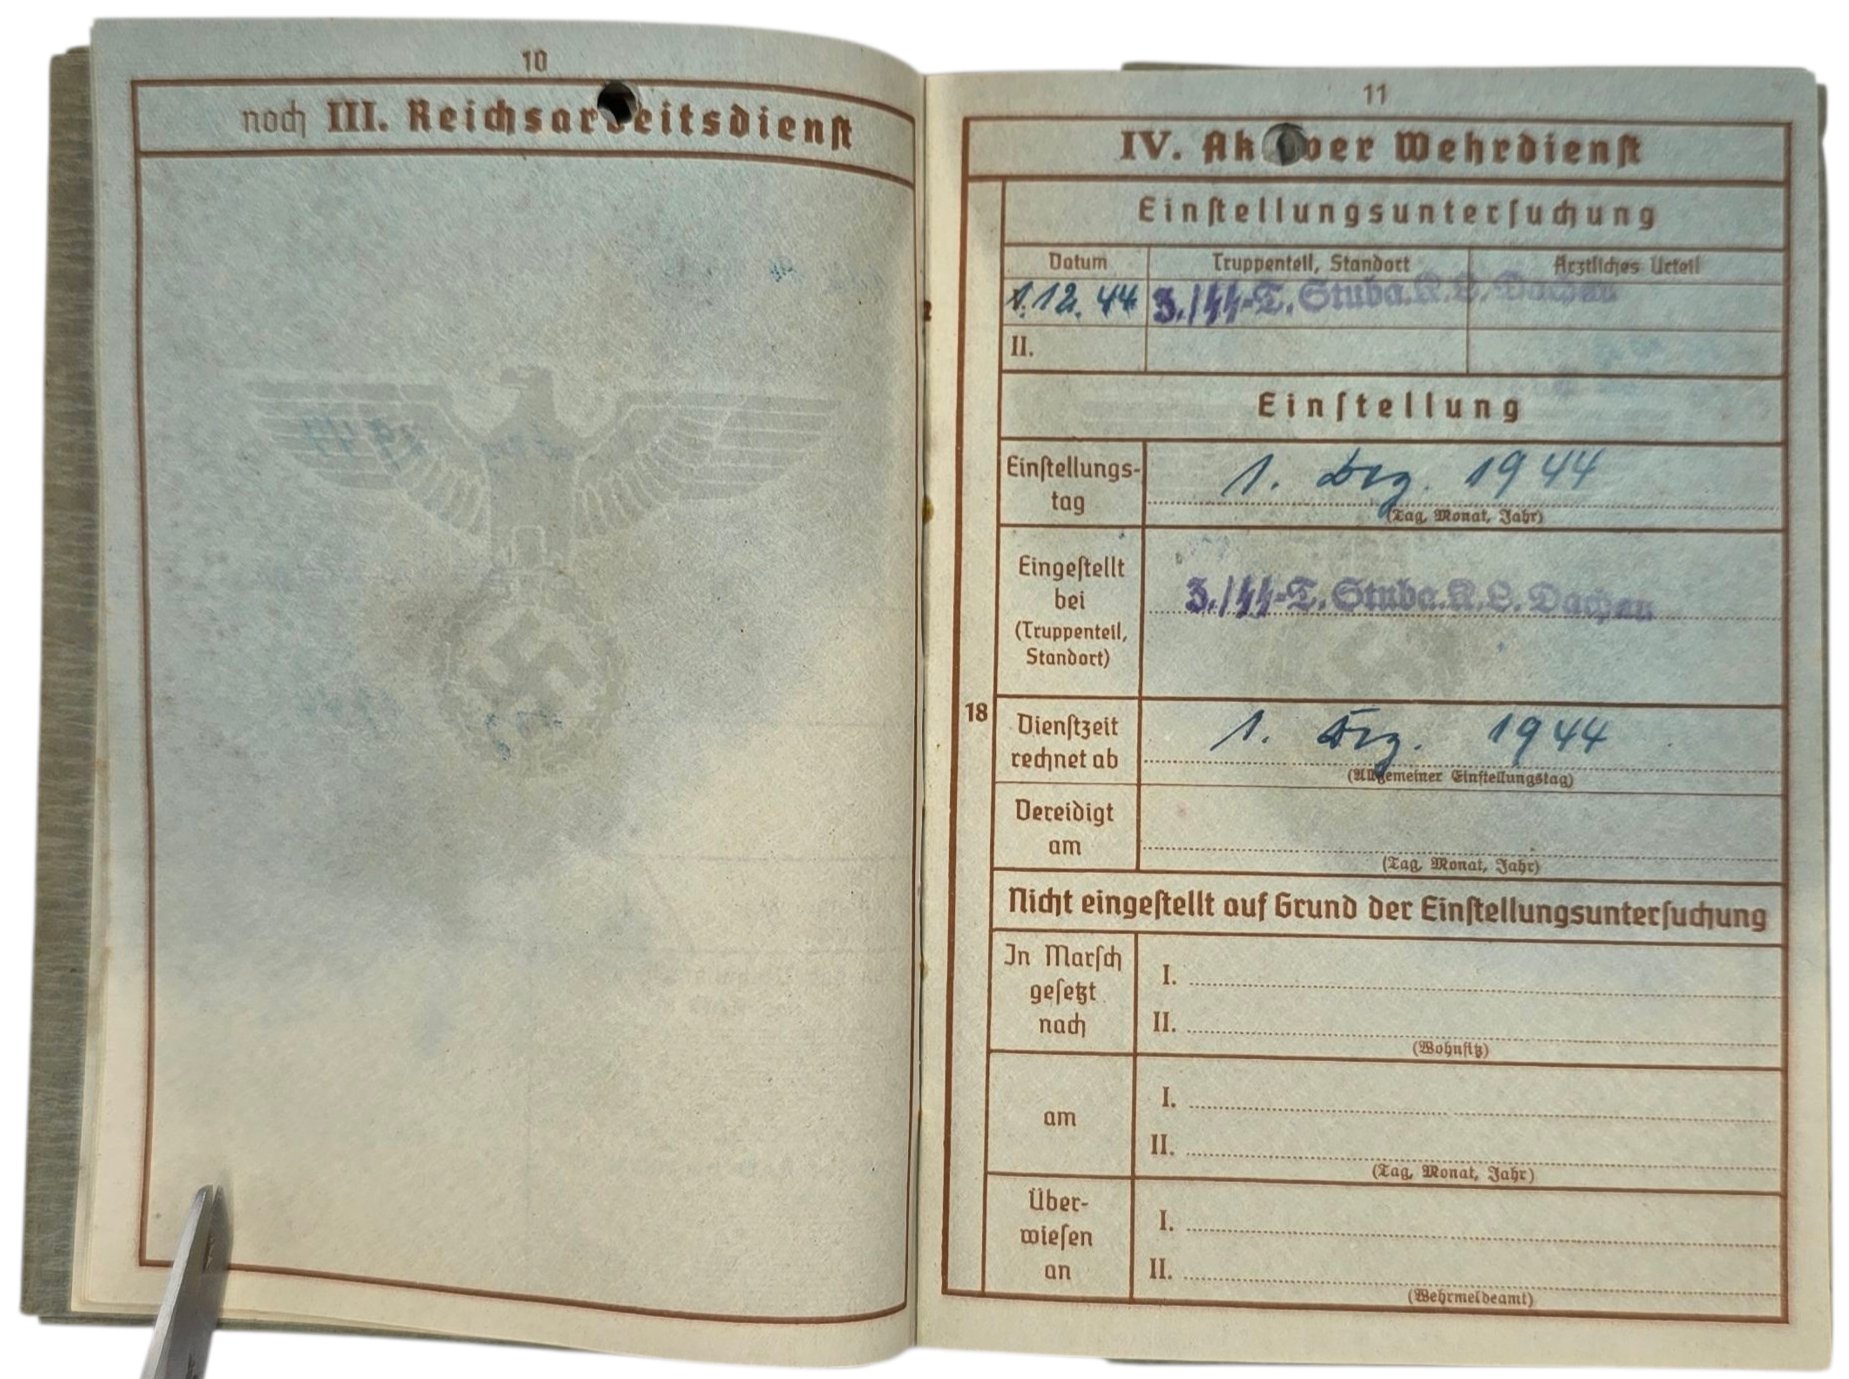 10
noch III. Reichsarbeitsdienst
11
IV. Aktiver Wehrdienst
Einstellungsuntersuchung
Datum Truppenteil, Standort Ärztliches Urteil
1.12.44 3./SS-T. Stuba.K.L. Dachau
II.
Einstellung
Einstellungs-
tag
1. Dez. 1944
(Tag, Monat, Jahr)
Eingestellt
bei
(Truppenteil,
Standort)
3./SS-T. Stuba.K.L. Dachau
18
Dienstzeit
rechnet ab
1. Dez. 1944
(Allgemeiner Einstellungstag)
Vereidigt
am
(Tag, Monat, Jahr)
Nicht eingestellt auf Grund der Einstellungsuntersuchung
In Marsch
gesetzt
nach
I.
II.
(Wohnsitz)
am
I.
II.
(Tag, Monat, Jahr)
Über-
wiesen
an
I.
II.
(Wehrmeldeamt)